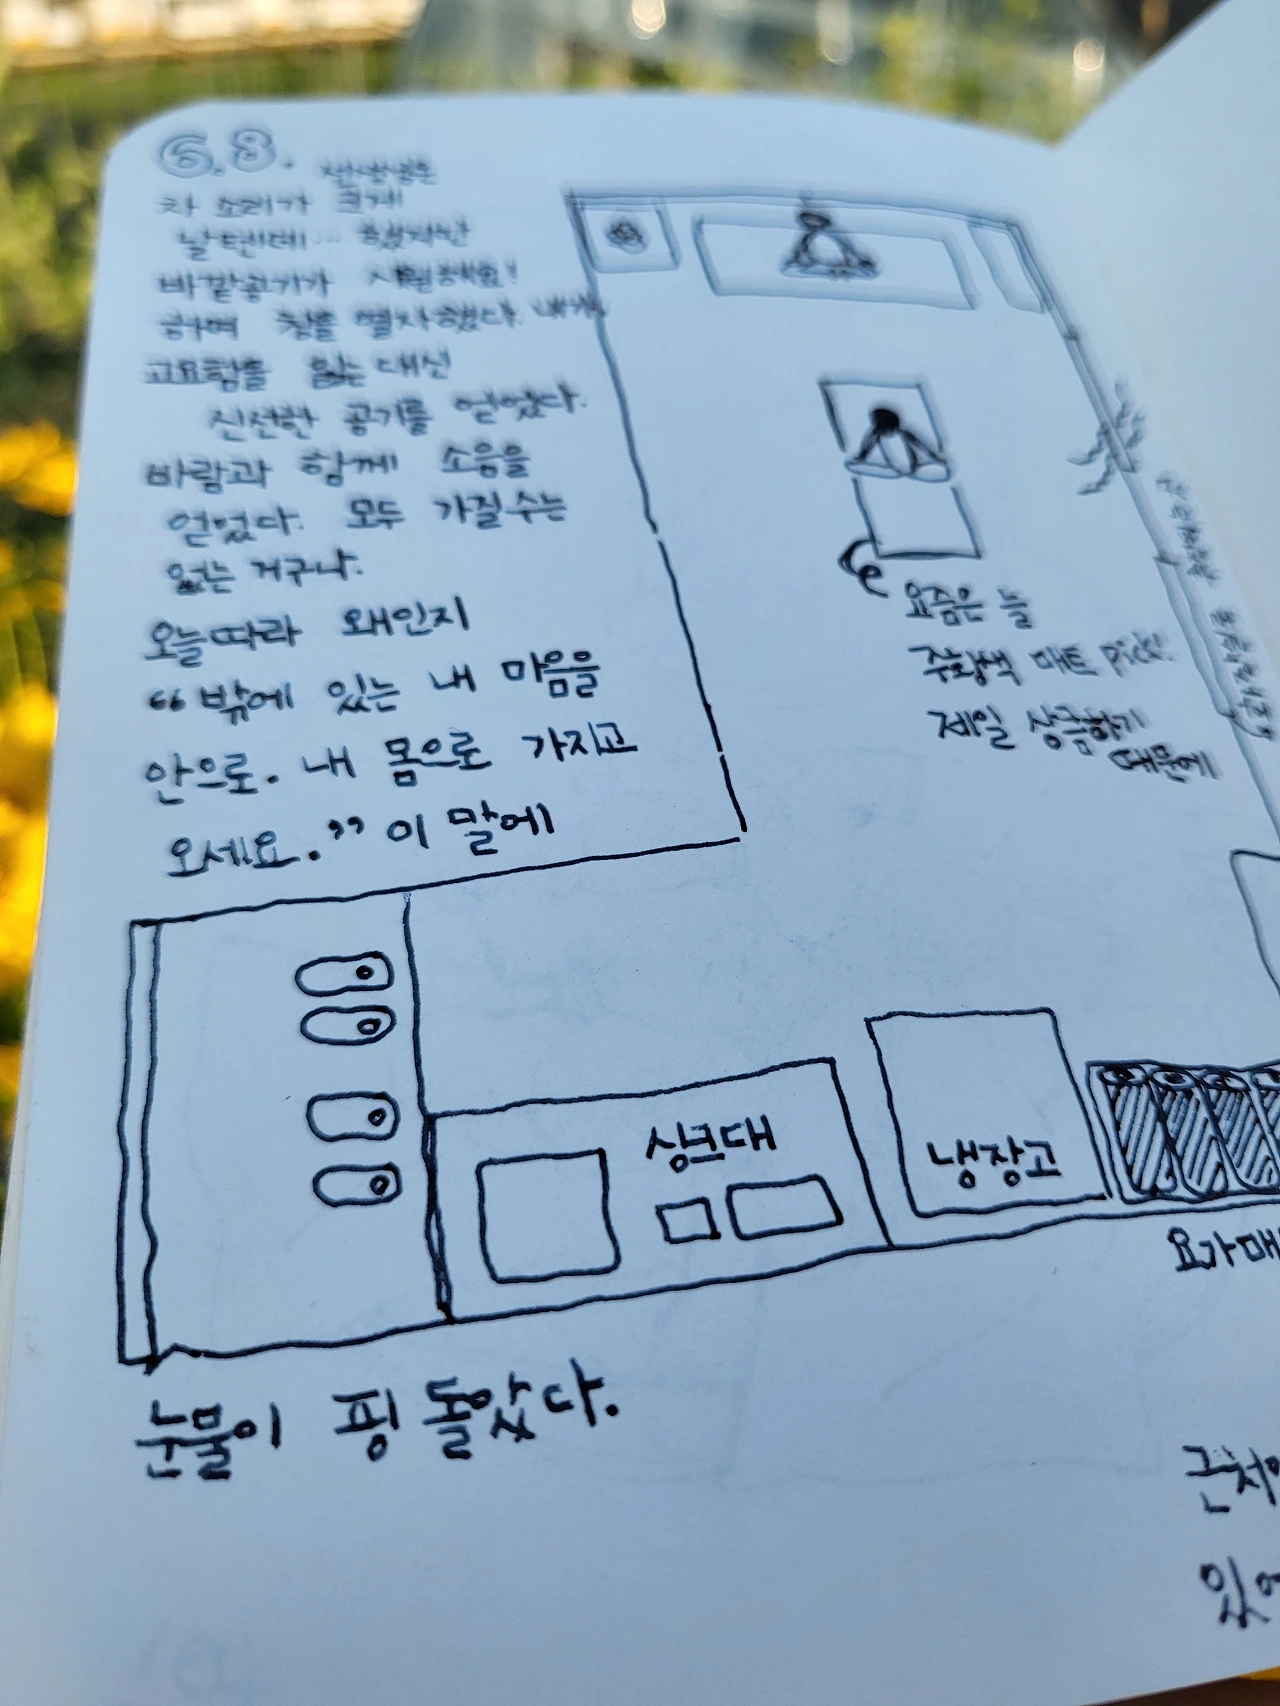 6.8. 선생님은
차 소리가 크게
날텐데... 했지만
바깥공기가 시원해요!
하며 창을 열자 했다. 내가
고요함을 잃는 대신
신선한 공기를 얻었다.
바람과 함께 소음을
얻었다. 모두 가질 수는
없는 거구나.
오늘따라 왜인지
“밖에 있는 내 마음을
안으로. 내 몸으로 가지고
오세요.” 이 말에
눈물이 핑 돌았다.
요즘은 늘
주황색 매트 pick!
제일 상큼하기
때문에
싱크대
냉장고
요가매
근처에
있어